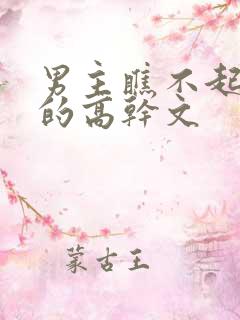 男主瞧不起
的高幹文
蒙古王